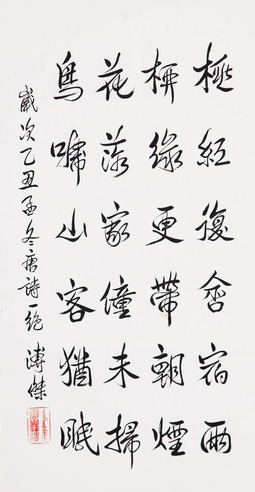 桃紅復含宿雨
柳緑更帶朝煙
花落家僮未掃
鳥啼山客猶眠
歲次乙丑孟冬唐詩一絕 溥傑